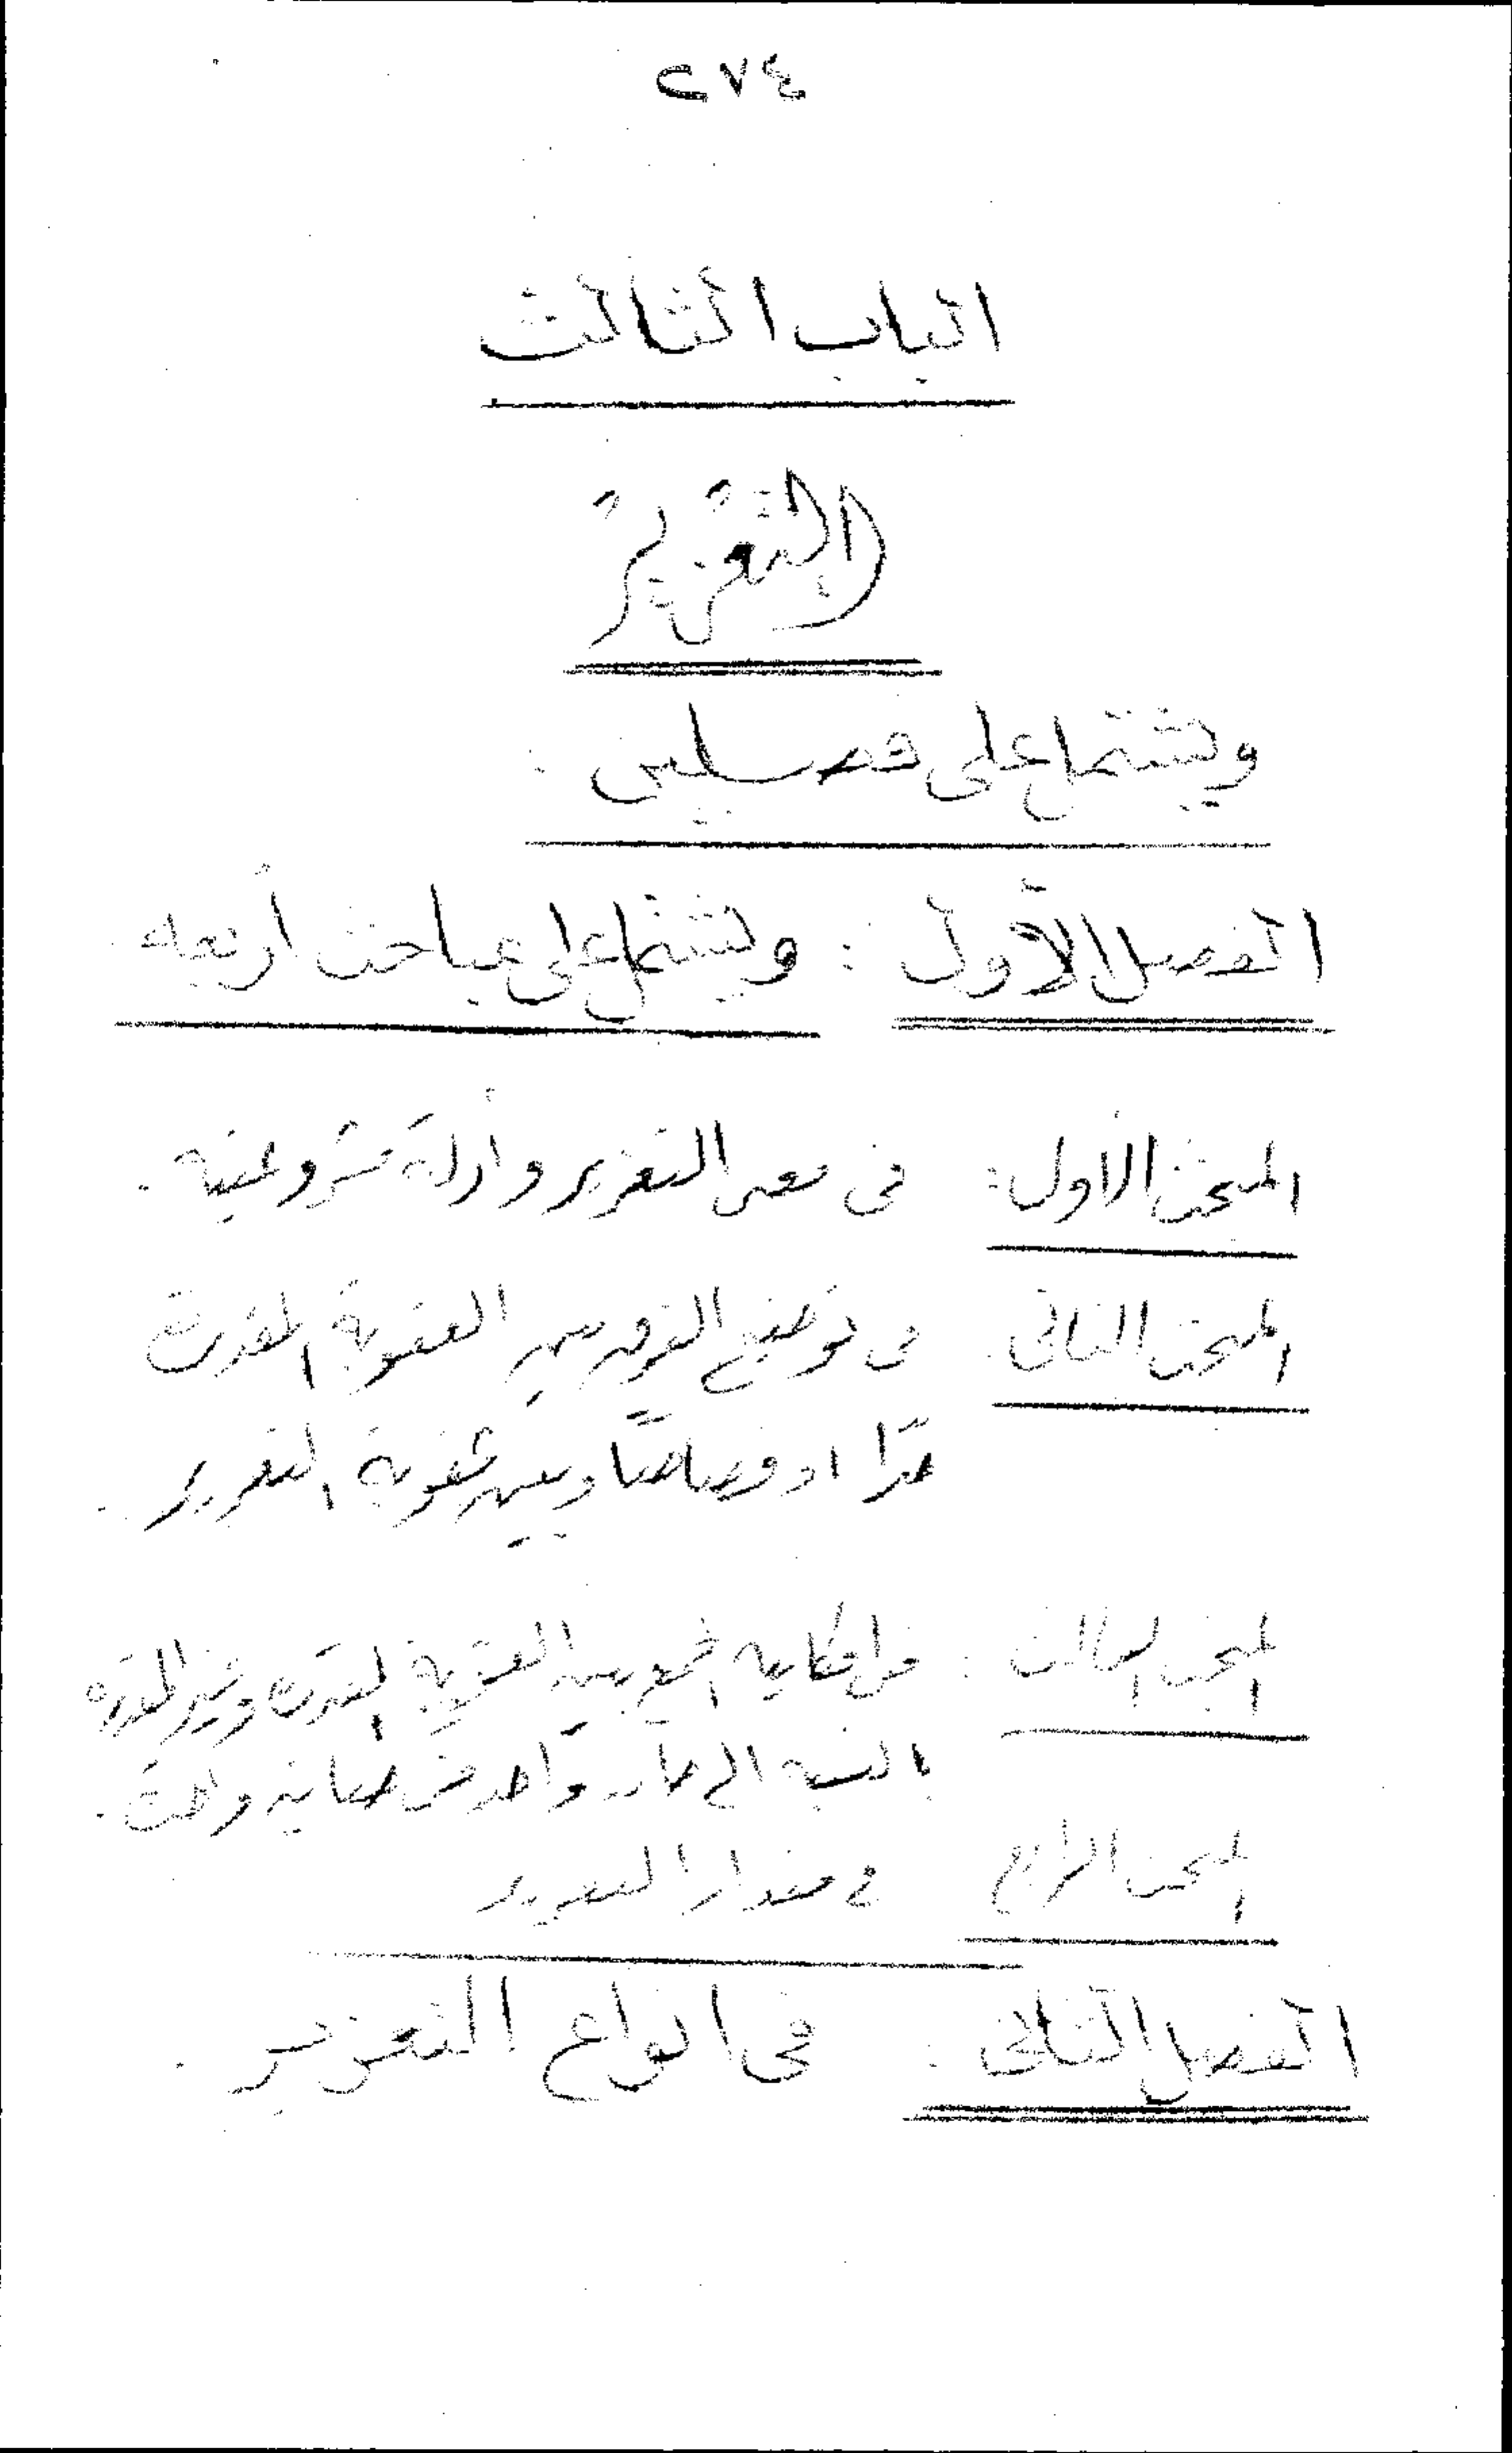 ٢٧٤
الباب الثالث
التعزير
ويشتمل على فصلين :
الفصل الأول : ويشتمل على مباحث أربعه
المبحث الأول : فى معنى التعزير وأدلة مشروعيته .
المبحث الثانى . فى توضيح الفرق بين العقوبة المقدرة
حدّا او قصاصًا وبين عقوبة التعزير .
المبحث الثالث : فى امكانيه الجمع بين العقوبة المقدرة وغير المقدره
بالنسبه الى جان واحد فى جناية واحدة .
المبحث الرابع فى مقدار التعزير
الفصل الثانى : فى انواع التعزير .